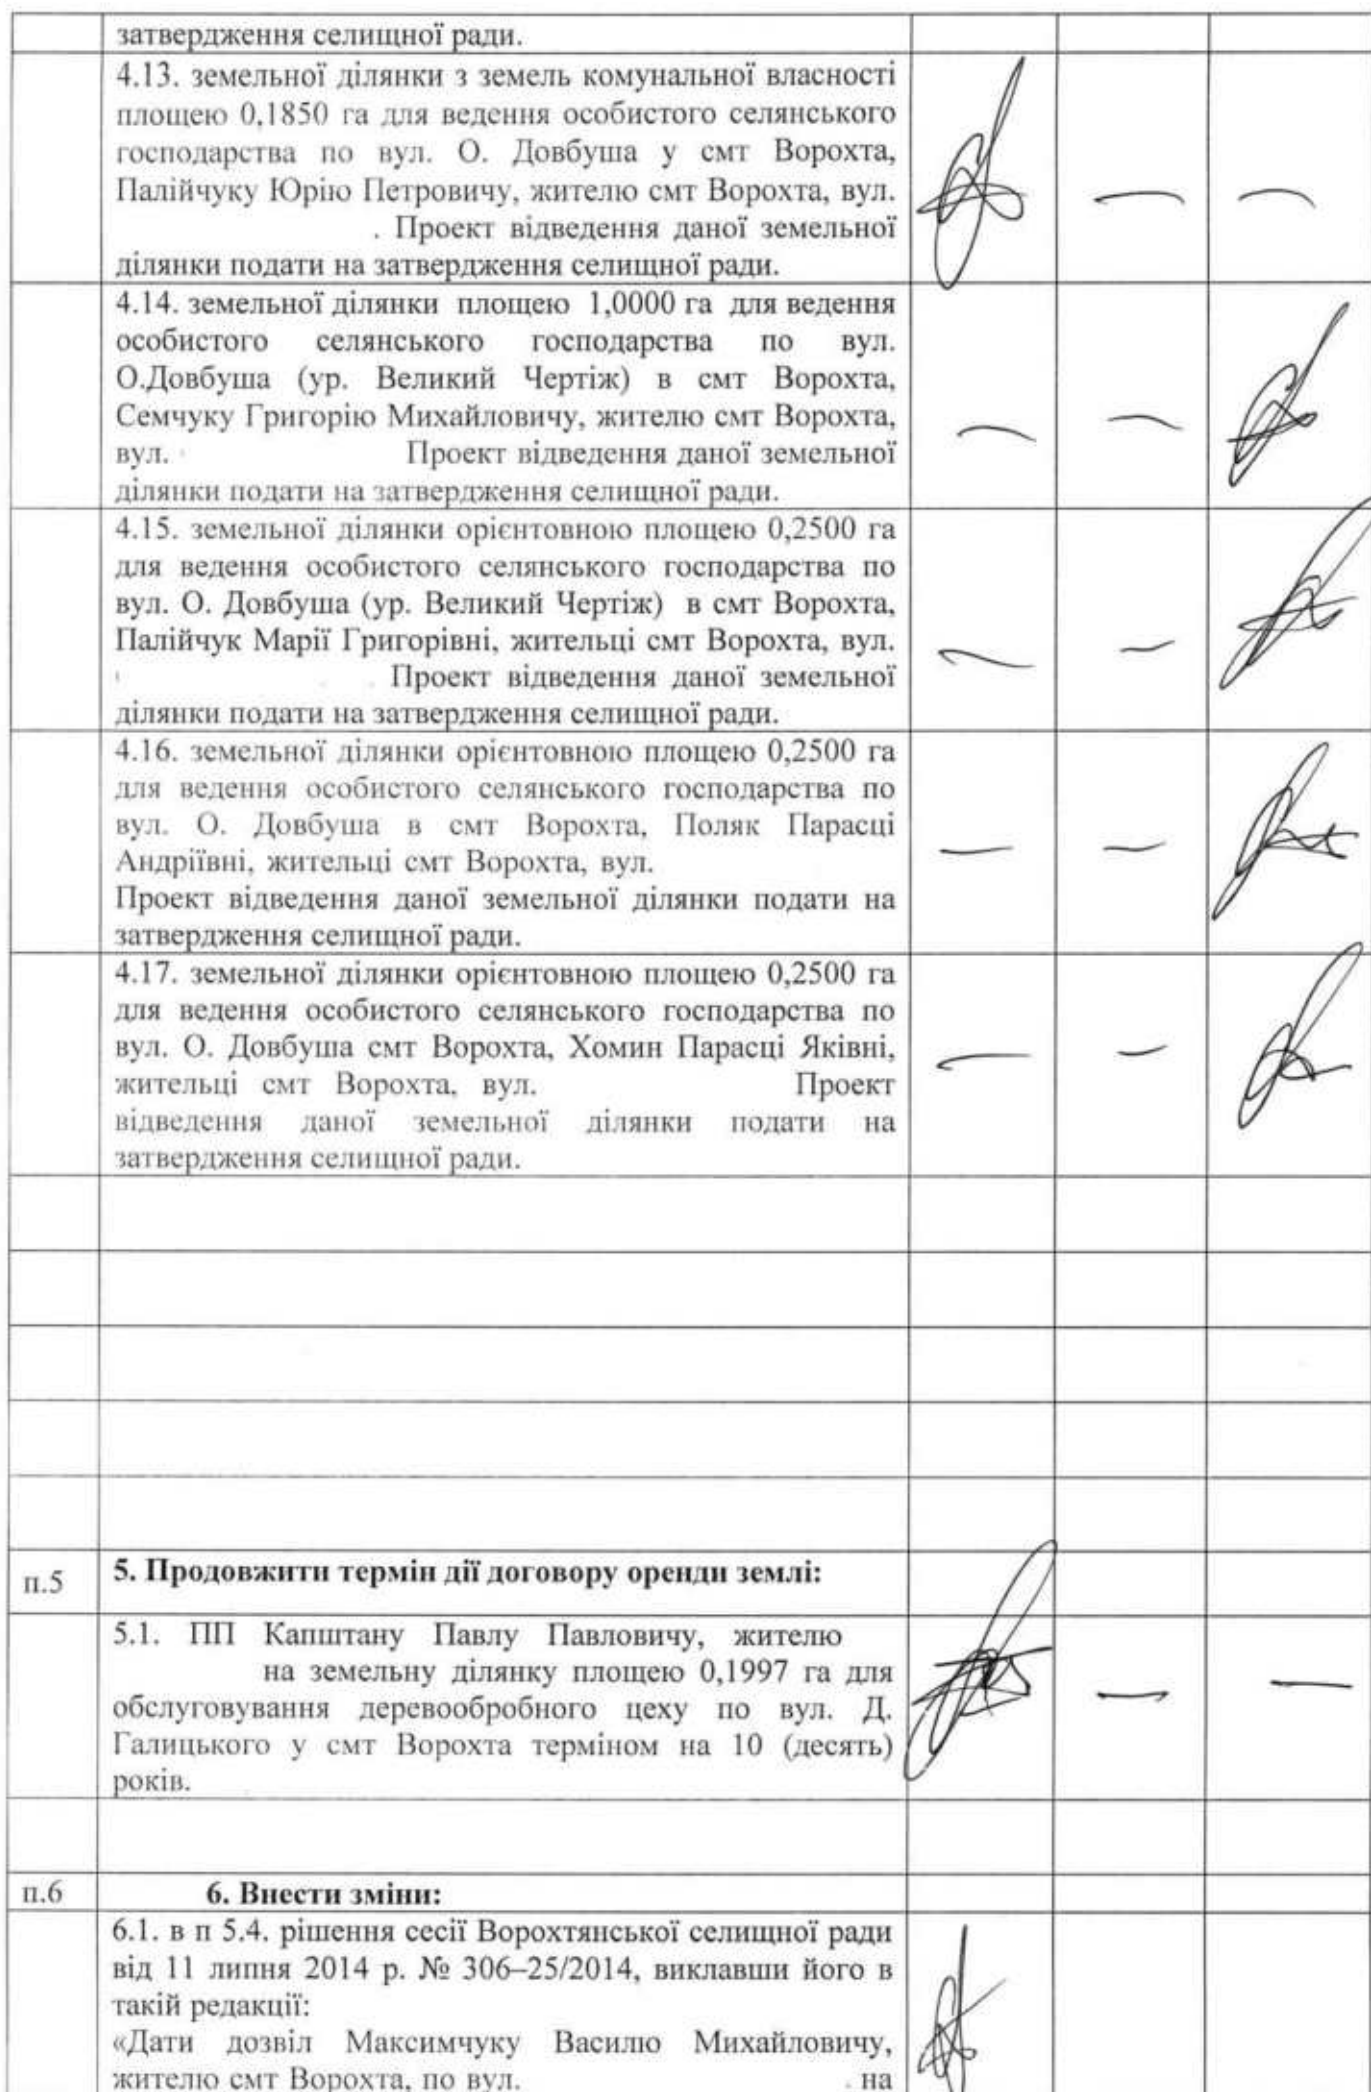 затвердження селищної ради.
4.13. земельної ділянки з земель комунальної власності
площею 0,1850 га для ведення особистого селянського
господарства по вул. О. Довбуша у смт Ворохта,
Палійчуку Юрію Петровичу, жителю смт Ворохта, вул.
. Проект відведення даної земельної
ділянки подати на затвердження селищної ради.
4.14. земельної ділянки площею 1,0000 га для ведення
особистого селянського господарства по вул.
О.Довбуша (ур. Великий Чертіж) в смт Ворохта,
Семчуку Григорію Михайловичу, жителю смт Ворохта,
вул. Проект відведення даної земельної
ділянки подати на затвердження селищної ради.
4.15. земельної ділянки орієнтовною площею 0,2500 га
для ведення особистого селянського господарства по
вул. О. Довбуша (ур. Великий Чертіж) в смт Ворохта,
Палійчук Марії Григорівні, жительці смт Ворохта, вул.
Проект відведення даної земельної
ділянки подати на затвердження селищної ради.
4.16. земельної ділянки орієнтовною площею 0,2500 га
для ведення особистого селянського господарства по
вул. О. Довбуша в смт Ворохта, Поляк Парасці
Андріївні, жительці смт Ворохта, вул.
Проект відведення даної земельної ділянки подати на
затвердження селищної ради.
4.17. земельної ділянки орієнтовною площею 0,2500 га
для ведення особистого селянського господарства по
вул. О. Довбуша смт Ворохта, Хомин Парасці Яківні,
жительці смт Ворохта, вул. Проект
відведення даної земельної ділянки подати на
затвердження селищної ради.
п.5 5. Продовжити термін дії договору оренди землі:
5.1. ПП Капштану Павлу Павловичу, жителю
на земельну ділянку площею 0,1997 га для
обслуговування деревообробного цеху по вул. Д.
Галицького у смт Ворохта терміном на 10 (десять)
років.
п.6 6. Внести зміни:
6.1. в п 5.4. рішення сесії Ворохтянської селищної ради
від 11 липня 2014 р. № 306–25/2014, виклавши його в
такій редакції:
«Дати дозвіл Максимчуку Василю Михайловичу,
жителю смт Ворохта, по вул. на